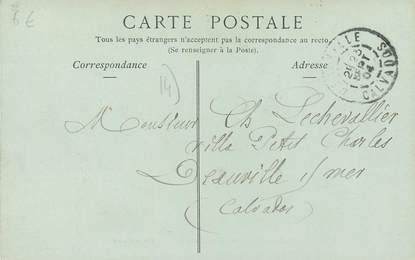 6€
CARTE POSTALE
Tous les pays étrangers n'acceptent pas la correspondance au recto.
(Se renseigner à la Poste).
Correspondance
Adresse
14
CALVADOS
Monsieur Ch Lechevallier
villa Petit Charles
Deauville s/mer
(Calvados)